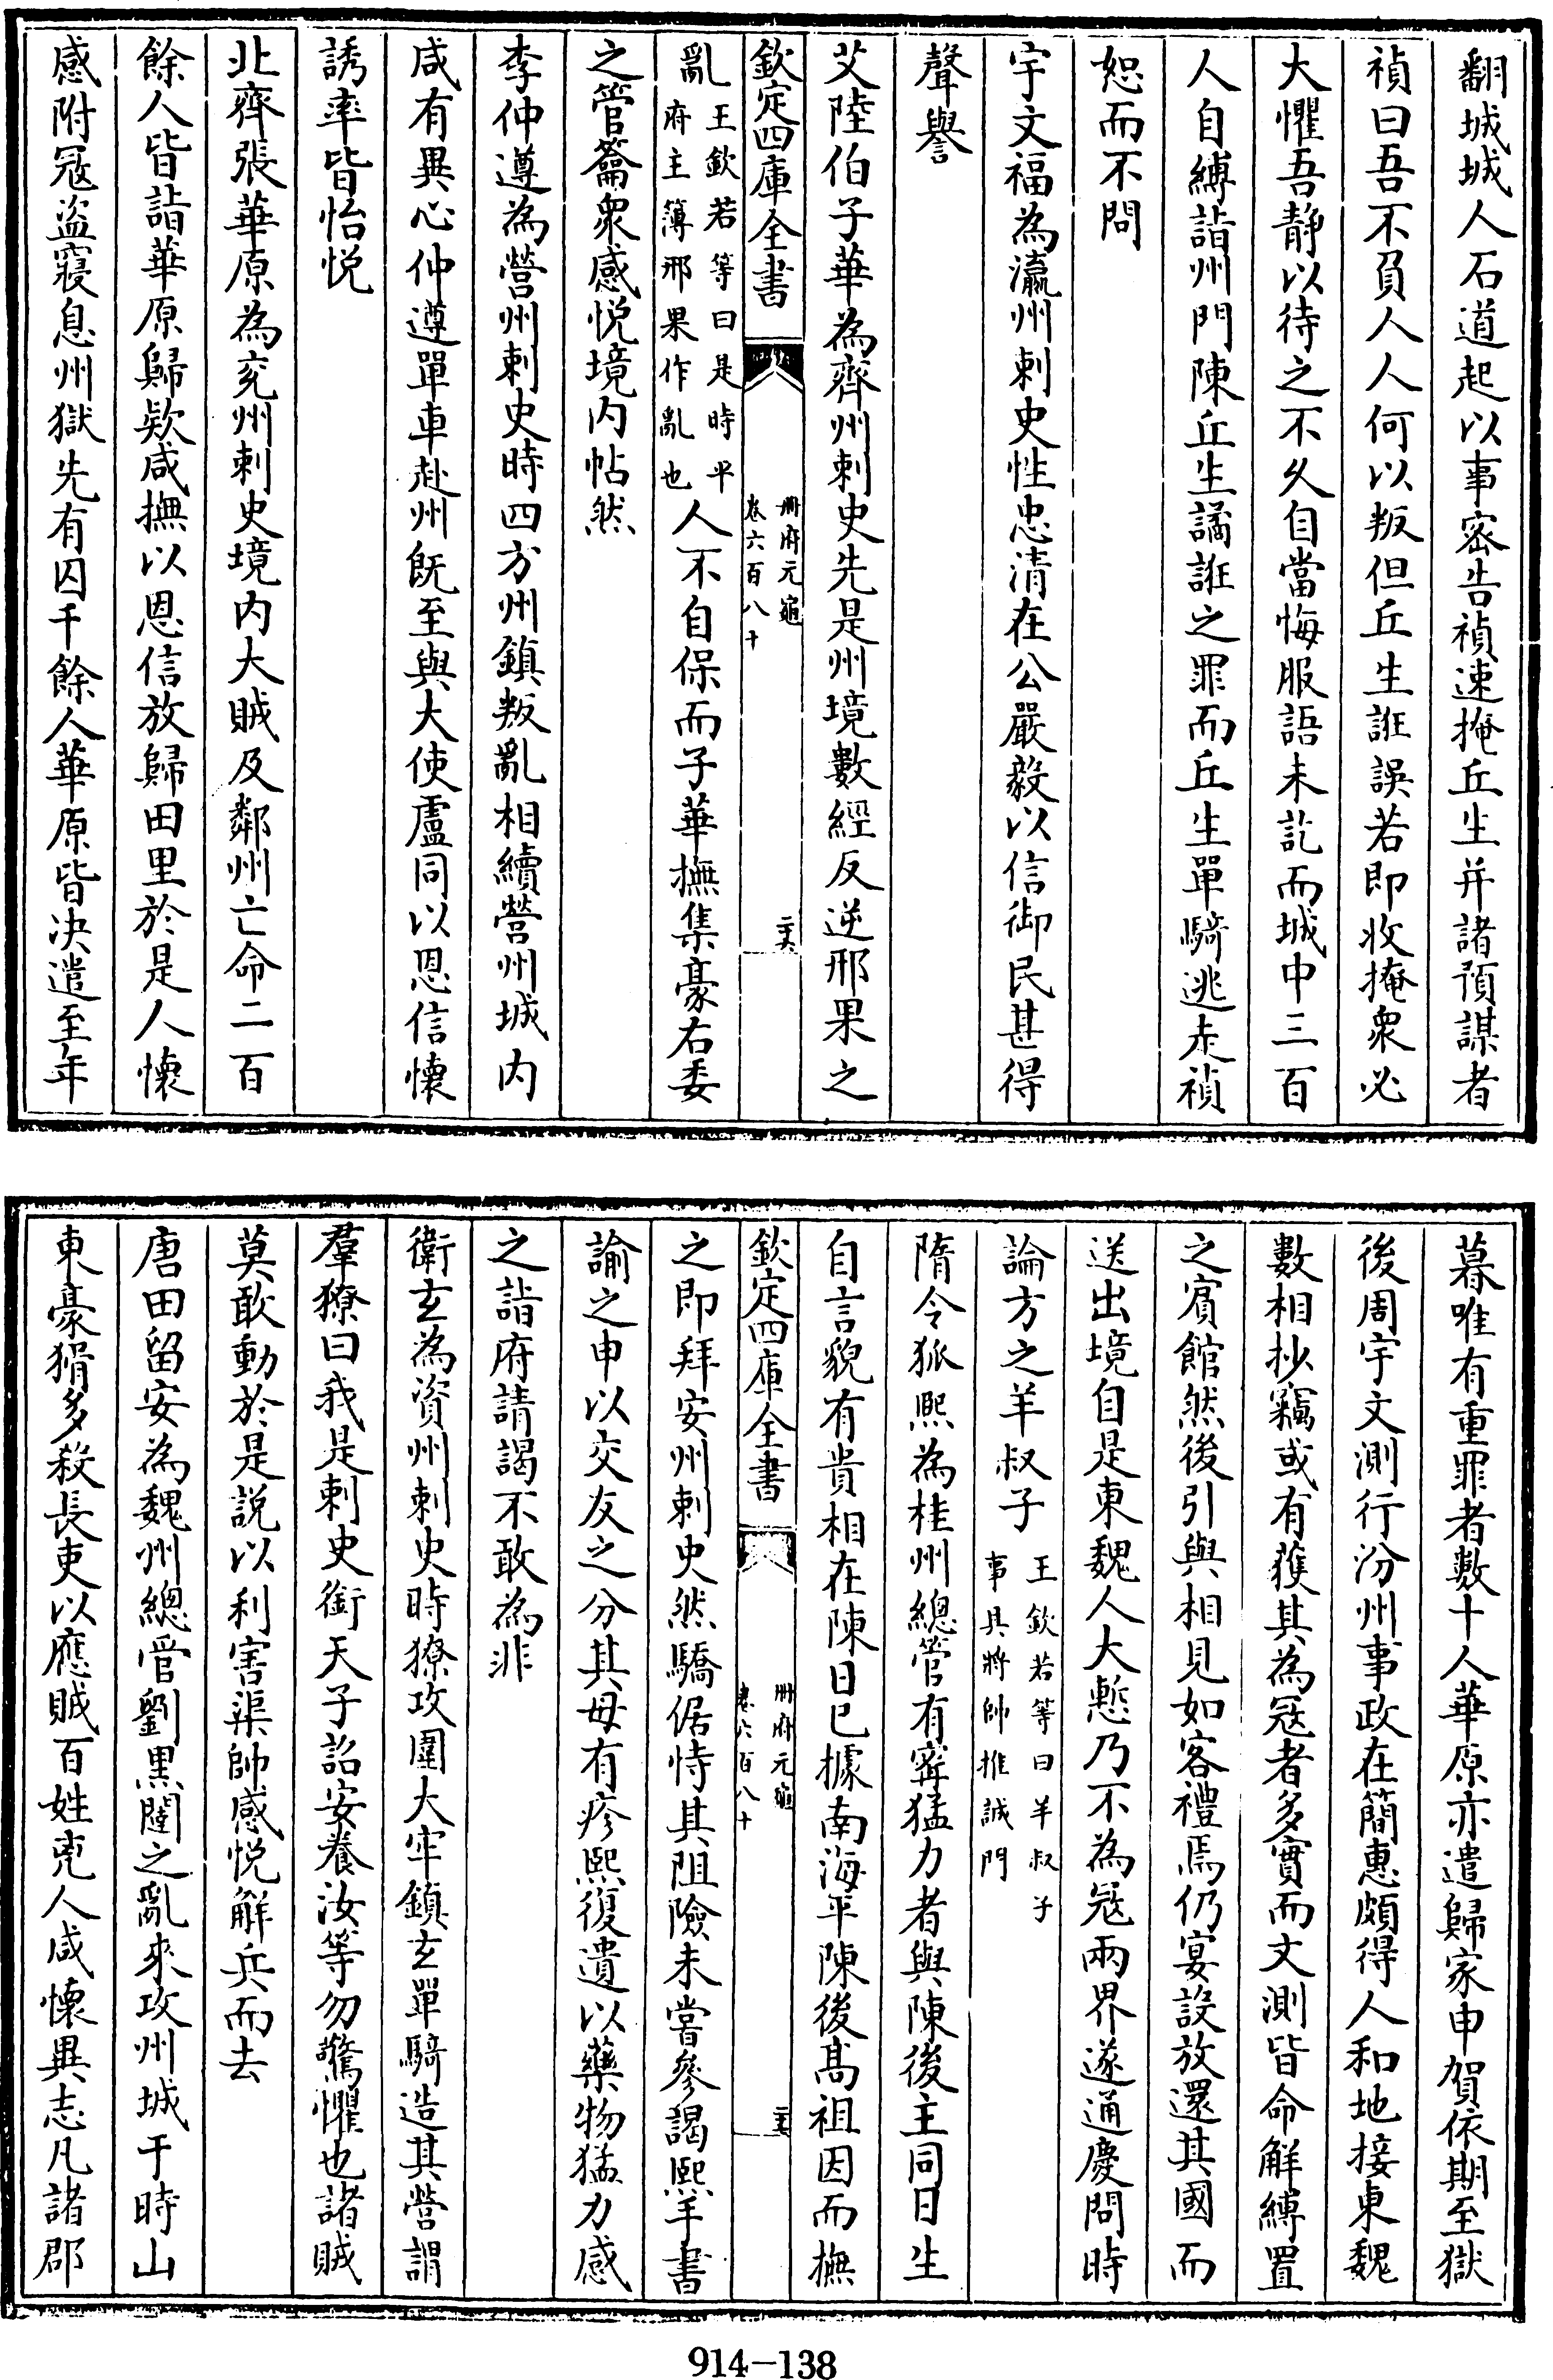 翻城城人石道起以事密告禎速掩丘生并諸預謀者
禎曰吾不負人人何以叛但丘生誑誤若即收掩衆必
大懼吾靜以待之不久自當悔服語未訖而城中三百
人自縛詣州門陳丘生譎誑之罪而丘生單騎逃走禎
恕而不問
宇文福為瀛州刺史性忠清在公嚴毅以信御民甚得
聲譽
艾陸伯子華為齊州刺史先是州境數經反逆邢果之
欽定四庫全書
冊府元龜
卷六百八十
亂王欽若等曰是時平府主簿邢果作亂也人不自保而子華撫集豪右委
之管籥衆感悦境内帖然
李仲遵為營州刺史時四方州鎮叛亂相續營州城内
咸有異心仲遵單車赴州既至與大使盧同以恩信懷
誘率皆怡悦
北齊張華原為兖州刺史境内大賊及鄰州亡命二百
餘人皆詣華原歸欵咸撫以恩信放歸田里於是人懷
感附冦盜寢息州獄先有囚千餘人華原皆决遣至年
暮唯有重罪者數十人華原亦遣歸家申賀依期至獄
後周宇文測行汾州事政在簡惠頗得人和地接東魏
數相抄竊或有獲其為冦者多實而文測皆命解縛置
之賔館然後引與相見如客禮焉仍宴設放還其國而
送出境自是東魏人大慙乃不為冦兩界遂通慶問時
論方之羊叔子王欽若等曰羊叔子事具將帥推誠門
隋令狐熙為桂州總管有甯猛力者與陳後主同日生
自言貌有貴相在陳日已據南海平陳後髙祖因而撫
欽定四庫全書
冊府元龜
卷六百八十
之即拜安州刺史然驕倨恃其阻險未嘗參謁熙手書
諭之申以交友之分其母有疹熙復遺以藥物猛力感
之詣府請謁不敢為非
衛玄為資州刺史時獠攻圍大牢鎮玄單騎造其營謂
羣獠曰我是刺史銜天子詔安養汝等勿驚懼也諸賊
莫敢動於是説以利害渠帥感悦解兵而去
唐田留安為魏州總管劉黒闥之亂來攻州城于時山
東豪猾多殺長吏以應賊百姓兇人咸懷異志凡諸郡
914—138